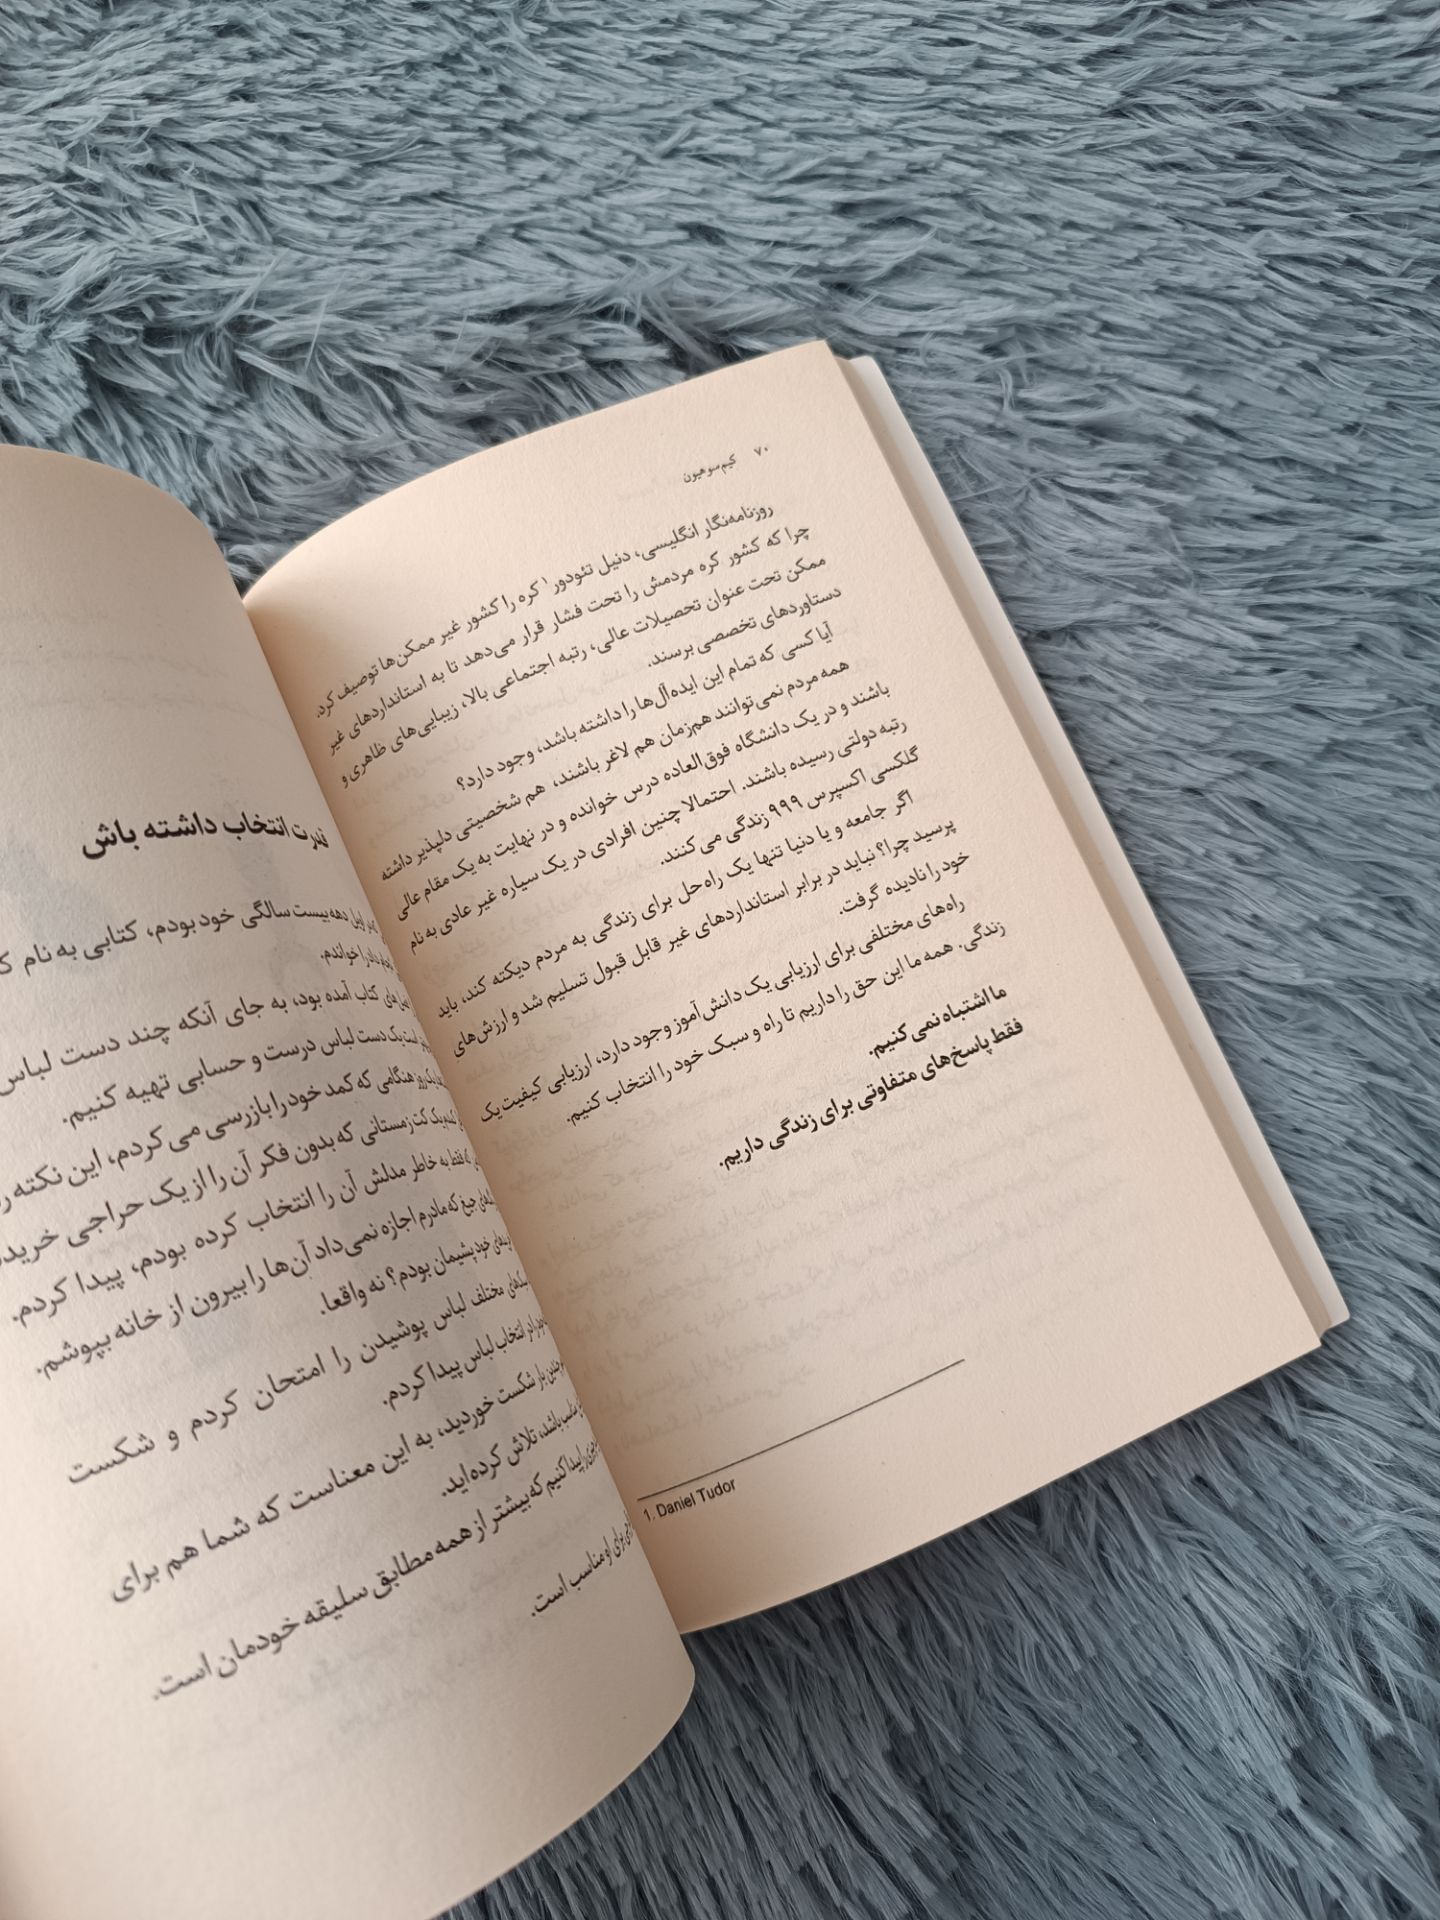 ۷۰ کیم سو هیون
روزنامه‌نگار انگلیسی، دنیل تئودور۱ کره را کشور غیر ممکن‌ها توصیف کرد.
چرا که کشور کره مردمش را تحت فشار قرار می‌دهد تا به استانداردهای غیر
ممکن تحت عنوان تحصیلات عالی، رتبه اجتماعی بالا، زیبایی‌های ظاهری و
دستاوردهای تخصصی برسند.
آیا کسی که تمام این ایده‌آل‌ها را داشته باشد، وجود دارد؟
همه مردم نمی‌توانند هم‌زمان هم لاغر باشند، هم شخصیتی دلپذیر داشته
باشند و در یک دانشگاه فوق‌العاده درس خوانده و در نهایت به یک مقام عالی
رتبه دولتی رسیده باشند. احتمالا چنین افرادی در یک سیاره غیر عادی به نام
گلکسی اکسپرس ۹۹۹ زندگی می کنند.
اگر جامعه و یا دنیا تنها یک راه‌حل برای زندگی به مردم دیکته کند، باید
پرسید چرا؟ نباید در برابر استانداردهای غیر قابل قبول تسلیم شد و ارزش‌های
خود را نادیده گرفت.
راه‌های مختلفی برای ارزیابی یک دانش‌آموز وجود دارد، ارزیابی کیفیت یک
زندگی. همه ما این حق را داریم تا راه و سبک خود را انتخاب کنیم.
ما اشتباه نمی کنیم.
فقط پاسخ‌های متفاوتی برای زندگی داریم.
1. Daniel Tudor
قدرت انتخاب داشته باش
اوایل دهه بیست سالگی خود بودم، کتابی به نام
را خواندم.
کتاب آمده بود، به جای آنکه چند دست لباس
است یک دست لباس درست و حسابی تهیه کنیم.
یک روز هنگامی که کمد خود را بازرسی می کردم، این نکته
یک کت زمستانی که بدون فکر آن را از یک حراجی
فقط به خاطر مدلش آن را انتخاب کرده بودم، پیدا کردم.
جیغ که مادرم اجازه نمی‌داد آن‌ها را بیرون از خانه بپوشم.
خود پشیمان بودم؟ نه واقعا.
مختلف لباس پوشیدن را امتحان کردم و شکست
در انتخاب لباس پیدا کردم.
چندین بار شکست خوردید، به این معناست که شما هم برای
مناسب باشد، تلاش کرده‌اید.
را پیدا کنیم که بیشتر از همه مطابق سلیقه خودمان است.
برای او مناسب است.